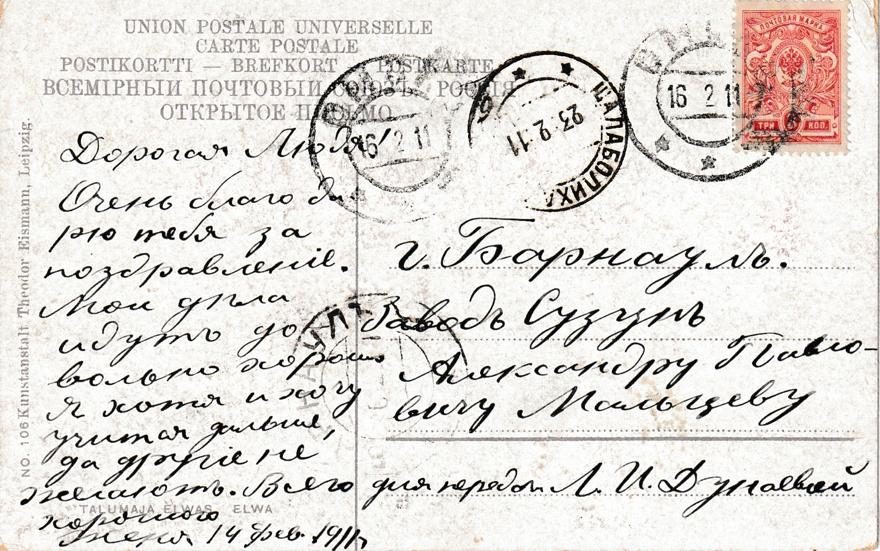 UNION POSTALE UNIVERSELLE
CARTE POSTALE
POSTIKORTTI — BREFKORT — POSTKARTE
ВСЕМІРНЫЙ ПОЧТОВЫЙ СОЮЗЪ, РОССІЯ
ОТКРЫТОЕ ПИСЬМО
ПОЧТОВАЯ МАРКА
ТРИ 3 КОП.
16 2 11
23.2.11
ШАЛАБОЛИХА
16 2 11
Дорогая Людя!
Очень благода
рю тебя за
поздравленіе.
Мои дѣла
идутъ до
вольно хорошо
я хотя и хочу
учится дальше,
да другіе не
желаютъ. Всего
хорошого
Женя. 14 фев. 1911 г.
г. Барнаулъ.
Заводъ Сузунъ
Александру Павло-
вичу Мальцеву
для передачи Л. И. Дунаевой
NO. 106 Kunstanstalt Theodor Eismann, Leipzig.
TALUMAJA ELWAS ELWA